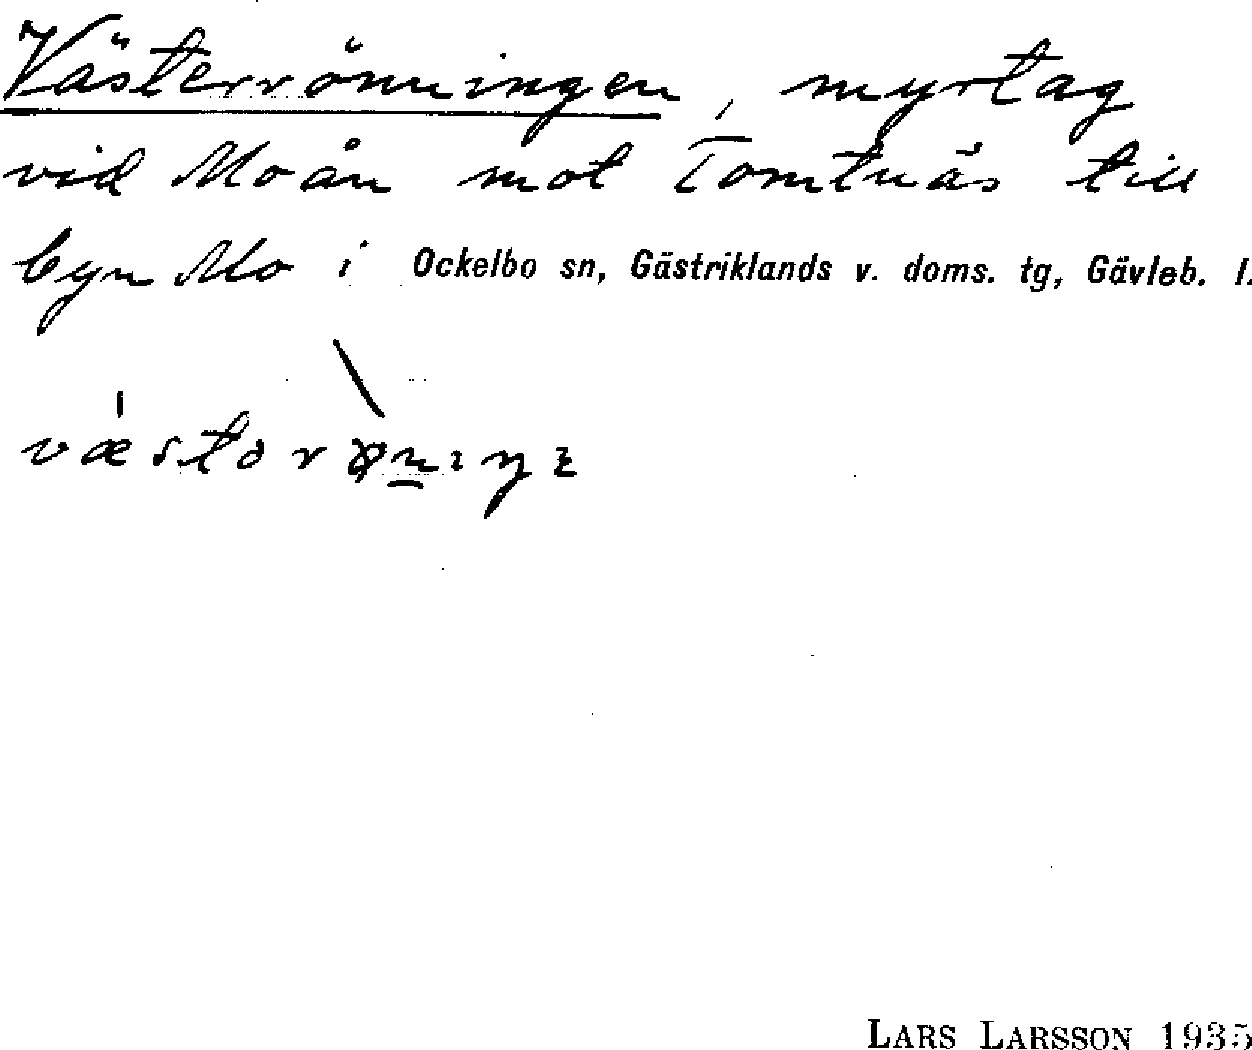 Västerrönningen, myrtag
vid Moån mot Tomtnäs till
byn Mo i Ockelbo sn, Gästriklands v. doms. tg, Gävleb. l.
LARS LARSSON 1935